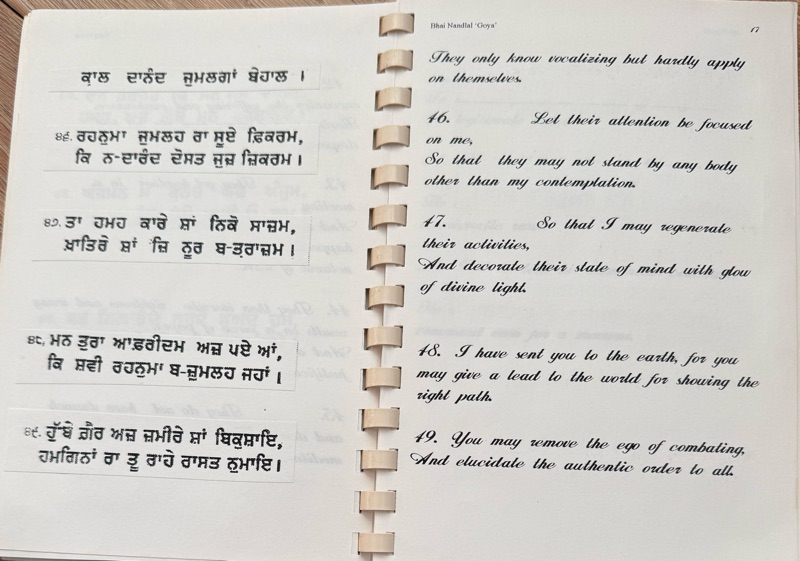 ਕਾਲ ਦਾਨੰਦ ਜੁਮਲਗਾਂ ਬੇਹਾਲ ।
੪੬. ਰਹਨੁਮਾ ਜੁਮਲਹ ਰਾ ਸੂਏ ਫ਼ਿਕਰਮ,
ਕਿ ਨ-ਦਾਰੰਦ ਦੋਸਤ ਜੁਜ਼ ਜ਼ਿਕਰਮ ।
੪੭. ਤਾ ਹਮਹ ਕਾਰੇ ਸ਼ਾਂ ਨਿਕੋ ਸਾਜ਼ਮ,
ਖ਼ਾਤਿਰੇ ਸ਼ਾਂ ਜ਼ਿ ਨੂਰ ਬ-ਤਰਾਜ਼ਮ ।
੪੮. ਮਨ ਤੁਰਾ ਆਫ਼ਰੀਦਮ ਅਜ਼ ਪਏ ਆਂ,
ਕਿ ਸ਼ਵੀ ਰਹਨੁਮਾ ਬ-ਜ਼ੁਮਲਹ ਜਹਾਂ ।
੪੯. ਹੁੱਬੇ ਗ਼ੈਰ ਅਜ਼ ਜ਼ਮੀਰੇ ਸ਼ਾਂ ਬਿਕੁਸ਼ਾਇ,
ਹਮਗਿਨਾਂ ਰਾ ਤੂ ਰਾਹੇ ਰਾਸਤ ਨੁਮਾਇ ।
Bhai Nandlal 'Goya' 17
They only know vocalizing but hardly apply
on themselves.
46. Let their attention be focused
on me,
So that they may not stand by any body
other than my contemplation.
47. So that I may regenerate
their activities,
And decorate their state of mind with glow
of divine light.
48. I have sent you to the earth, for you
may give a lead to the world for showing the
right path.
49. You may remove the ego of combating,
And elucidate the authentic order to all.